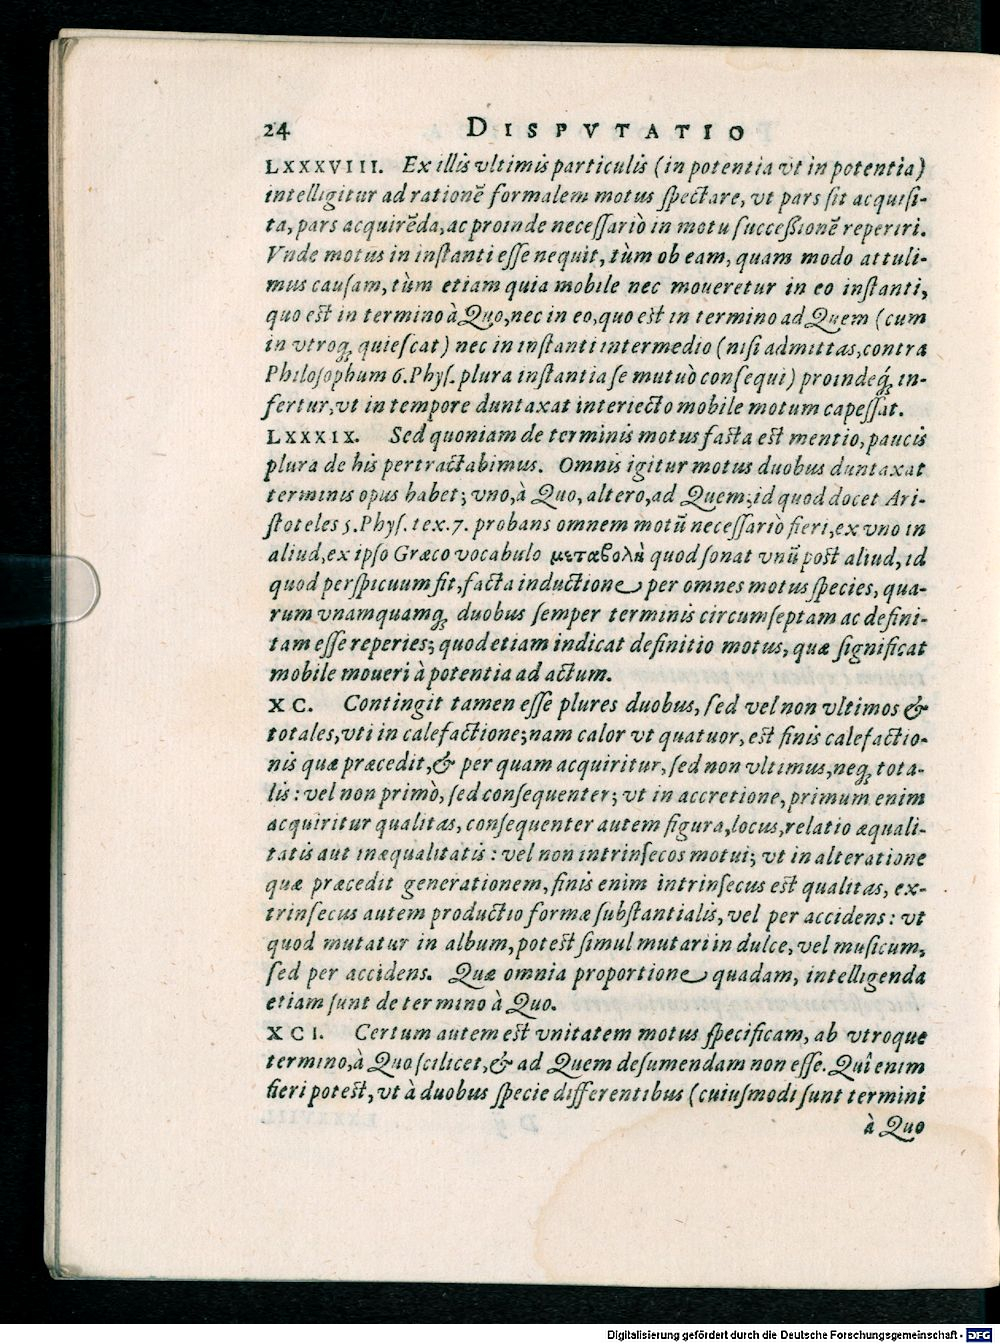 24 DISPVTATIO
LXXXVIII. Ex illis vltimis particulis (in potentia vt in potentia)
intelligitur ad rationẽ formalem motus ſpectare, vt pars ſit acquiſi-
ta, pars acquirẽda, ac proinde neceſſariò in motu ſucceßionẽ reperiri.
Vnde motus in inſtanti eſſe nequit, tùm ob eam, quam modo attuli-
mus cauſam, tùm etiam quia mobile nec moueretur in eo inſtanti,
quo est in termino à Quo, nec in eo, quo est in termino ad Quem (cum
in vtroq; quieſcat) nec in inſtanti intermedio (niſi admittas, contra
Philoſophum 6. Phyſ. plura inſtantia ſe mutuò conſequi) proindeq́; in-
fertur, vt in tempore duntaxat interiecto mobile motum capeſſat.
LXXXIX. Sed quoniam de terminis motus facta est mentio, paucis
plura de his pertractabimus. Omnis igitur motus duobus duntaxat
terminis opus habet; vno, à Quo, altero, ad Quem; id quod docet Ari-
ſtoteles 5. Phyſ. tex. 7. probans omnem motũ neceſſariò fieri, ex vno in
aliud, ex ipſo Græco vocabulo μεταβολὴ quod ſonat vnũ post aliud, id
quod perſpicuum fit, facta inductione per omnes motus ſpecies, qua-
rum vnamquamq; duobus ſemper terminis circumſeptam ac defini-
tam eſſe reperies; quod etiam indicat definitio motus, quæ ſignificat
mobile moueri à potentia ad actum.
XC. Contingit tamen eſſe plures duobus, ſed vel non vltimos &
totales, vti in calefactione; nam calor vt quatuor, est finis calefactio-
nis quæ præcedit, & per quam acquiritur, ſed non vltimus, neq; tota-
lis: vel non primò, ſed conſequenter; vt in accretione, primum enim
acquiritur qualitas, conſequenter autem figura, locus, relatio æquali-
tatis aut inæqualitatis: vel non intrinſecos motui; vt in alteratione
quæ præcedit generationem, finis enim intrinſecus est qualitas, ex-
trinſecus autem productio formæ ſubſtantialis, vel per accidens: vt
quod mutatur in album, potest ſimul mutari in dulce, vel muſicum,
ſed per accidens. Quæ omnia proportione quadam, intelligenda
etiam ſunt de termino à Quo.
XCI. Certum autem est vnitatem motus ſpecificam, ab vtroque
termino, à Quo ſcilicet, & ad Quem deſumendam non eſſe. Quî enim
fieri potest, vt à duobus ſpecie differentibus (cuiuſmodi ſunt termini
à Quo
Digitalisierung gefördert durch die Deutsche Forschungsgemeinschaft - DFG